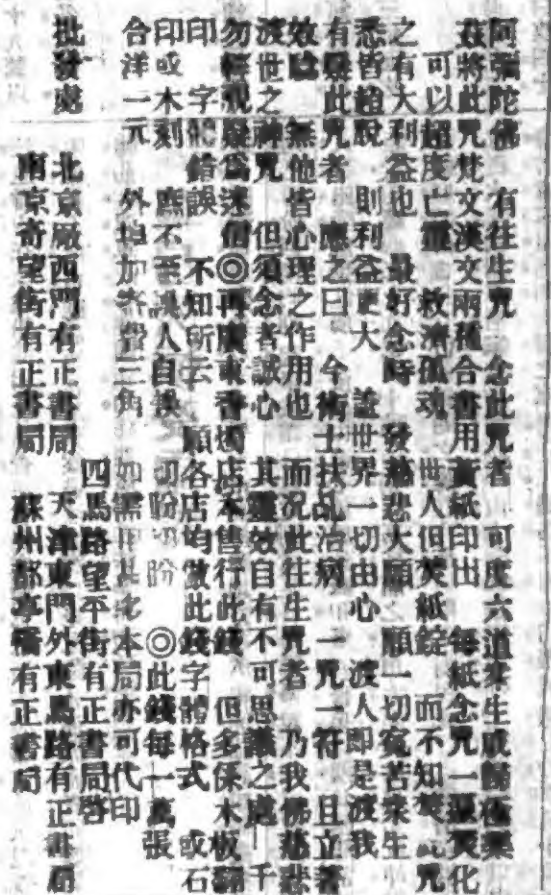 阿彌陀佛 有往生咒 念此咒者 可度六道羣生咸歸極樂
茲將此咒梵文漢文兩種合書用黃紙印出 每紙念咒一遍焚化
可以超度亡靈 救濟孤魂 世人但焚紙錠 而不知焚此咒
之有大利益也 最好念時 發慈悲大願 願一切寃苦衆生
悉皆超脫 則利益更大 蓋世界一切由心 渡人即是渡我
有疑此咒者 應之曰 今術士扶乩治病 一咒一符 且立著
效驗 無他皆心理之作用也 而况此往生咒者 乃我佛慈悲
渡世之神咒 但須念者誠心 其靈效自有不可思議之處 千
勿輕視疑爲迷信◎再廣東香燭店本售行此錢 但多係木板翻
印 字體錯誤 不知所云 願各店均倣此錢字體格式 或石
印或木刻 庶不至誤人自誤 切盼切盼 ◎此錢每一萬張
合洋一元 外埠加寄費三角 如需用甚多本局亦可代印
四馬路望平街有正書局啓
批發處 北京厰西門有正書局 天津東門外東馬路有正書局
南京奇望街有正書局 蘇州都亭橋有正書局